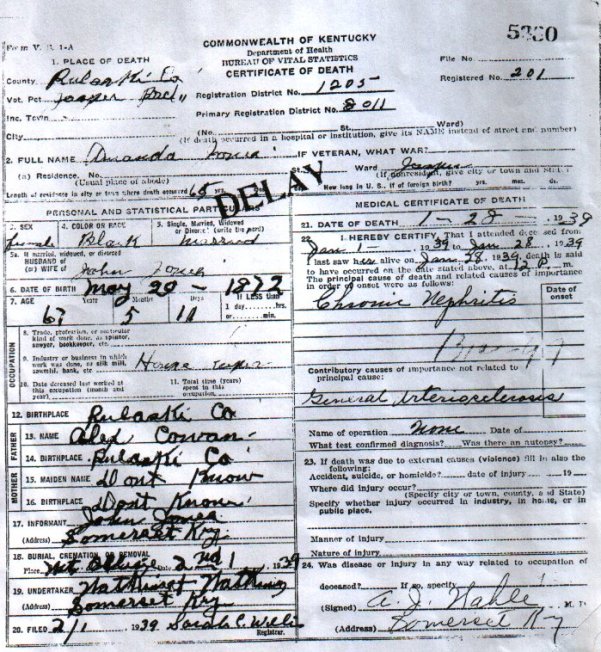 Form V. S. 1-A
COMMONWEALTH OF KENTUCKY
Department of Health
BUREAU OF VITAL STATISTICS
CERTIFICATE OF DEATH
File No.
Registered No. 201
1. PLACE OF DEATH
County Pulaski Co
Vot. Pct Jasper
Registration District No. 1205
Inc. Town
Primary Registration District No. 8011
City
(No. St. Ward)
(If death occurred in a hospital or institution, give its NAME instead of street and number)
2. FULL NAME Amanda Jones
IF VETERAN, WHAT WAR?
(a) Residence. No. St. Ward
(Usual place of abode)
(If nonresident, give city or town and State)
Length of residence in city or town where death occurred 65 yrs.
How long in U. S., if of foreign birth? yrs. mos. ds.
DELAY
PERSONAL AND STATISTICAL PARTICULARS
3. SEX
female
4. COLOR OR RACE
Black
5. Single, Married, Widowed or Divorced (write the word)
married
5a. If married, widowed, or divorced
HUSBAND of
(or) WIFE of John Jones
6. DATE OF BIRTH May 29 - 1872
7. AGE Years Months Days IF LESS than
1 day.....hrs.
or.....min.
67 5 11
OCCUPATION
8. Trade, profession, or particular
kind of work done, as spinner,
sawyer, bookkeeper, etc.
9. Industry or business in which
work was done, as silk mill,
sawmill, bank, etc. House Keeper
10. Date deceased last worked at
this occupation (month and
year)
11. Total time (years)
spent in this
occupation
12. BIRTHPLACE Pulaski Co
FATHER
13. NAME Alex Cowan
14. BIRTHPLACE Pulaski Co
MOTHER
15. MAIDEN NAME Dont Know
16. BIRTHPLACE Dont Know
17. INFORMANT John Jones
(Address) Somerset Ky.
18. BURIAL, CREMATION OR REMOVAL
Place Date 1939
19. UNDERTAKER Watkins & Watkins
(Address) Somerset Ky
20. FILED 2/1 1939 Sarah C.
Registrar.
MEDICAL CERTIFICATE OF DEATH
21. DATE OF DEATH 1 - 28 - 1939
22. I HEREBY CERTIFY, That I attended deceased from
Jan 1939 to Jan 28, 1939
I last saw her alive on Jan 28, 1939, death is said
to have occurred on the date stated above, at 12 p. m.
The principal cause of death and related causes of importance
in order of onset were as follows:
Date of
onset
Chronic Nephritis
Contributory causes of importance not related to
principal cause:
General Arteriosclerosis
Name of operation None Date of
What test confirmed diagnosis? Was there an autopsy?
23. If death was due to external causes (violence) fill in also the
following:
Accident, suicide, or homicide? date of injury 19
Where did injury occur?
(Specify city or town, county, and State)
Specify whether injury occurred in industry, in home, or in
public place.
Manner of injury
Nature of injury
24. Was disease or injury in any way related to occupation of
deceased? If so, specify
(Signed) A. J. M. D.
(Address) Somerset Ky